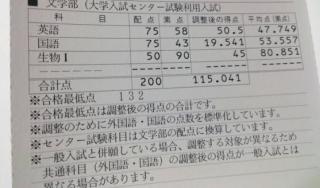 ■ 文学部（大学入試センター試験利用入試）
科 目 配点 素点 調整後の得点 平均点(素点)
英語 75 58 50.5 47.749
国語 75 43 19.541 53.557
生物Ⅰ 50 90 45 80.851
-------- ------
合計点 200 115.041
※合格最低点 １３２
※合格最低点は調整後の得点の合計です。
※調整のために外国語・国語の点数を標準化しています。
※センター試験科目は文学部の配点に換算しています。
※一般入試と併願している場合、調整する対象が異なるため
共通科目（外国語・国語）の調整後の得点が一般入試とは
異なる場合があります。